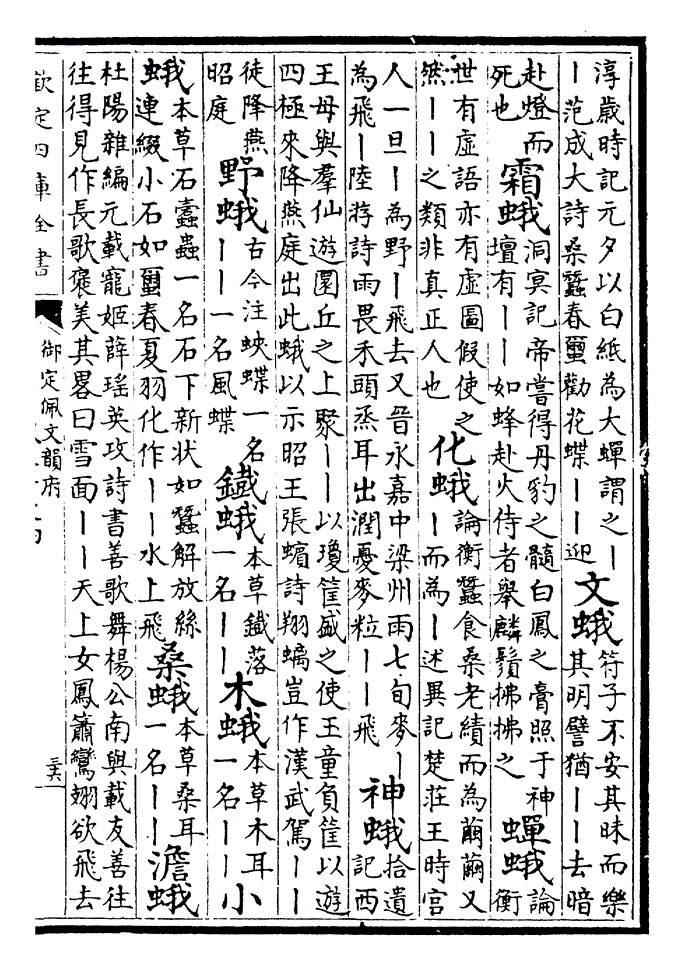 淳歲時記元夕以白紙為大蟬謂之丨丨范成大詩桑蠶春璽勸花蝶丨丨迎文蛾符子不安其昧而樂其明譬猶丨丨去暗
赴燈而死也霜蛾洞冥記帝嘗得丹豹之髓白鳳之膏照于神壇有丨丨如蜂赴火侍者舉麟鬚拂拂之蟬蛾論衡
世有虛語亦有虛圖假使之然丨丨之類非真正人也化蛾論衡蠶食桑老績而為繭繭又丨而為丨述異記楚莊王時宮
人一旦丨為野丨飛去又晉永嘉中梁州雨七旬麥丨為飛丨陸游詩雨畏禾頭烝耳出潤憂麥粒丨丨飛神蛾拾遺記西
王母與羣仙遊圜丘之上聚丨丨以瓊筐盛之使王童負筐以遊四極來降燕庭出此蛾以示昭王張蠙詩翔螭豈作漢武駕丨丨
徒降燕昭庭野蛾古今注蛺蝶一名丨丨一名風蝶鐵蛾本草鐵落一名丨丨木蛾本草木耳一名丨丨小
蛾本草石蠹蟲一名石下新状如蠶解放絲連綴小石如璽春夏羽化作丨丨水上飛桑蛾本草桑耳一名丨丨澹蛾
杜陽雜編元載寵姬薛瑤英攻詩書善歌舞楊公南與載友善往往得見作長歌褒美其畧曰雪面丨丨天上女鳳簫鸞翅欲飛去
欽定四庫全書
御定佩文韻府
三六